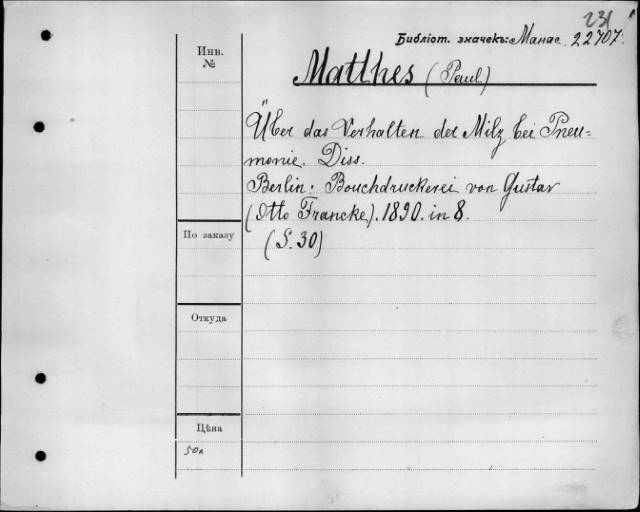 231
Библіот. значекъ: Манас. 22707.
Инв.
№
Matthes (Paul)
Über das Verhalten der Milz bei Pneu=
monie. Diss.
Berlin: Bouchdruckerei von Gustav
(Otto Francke). 1890. in 8.
(S. 30)
По заказу
Откуда
Цѣна
50к